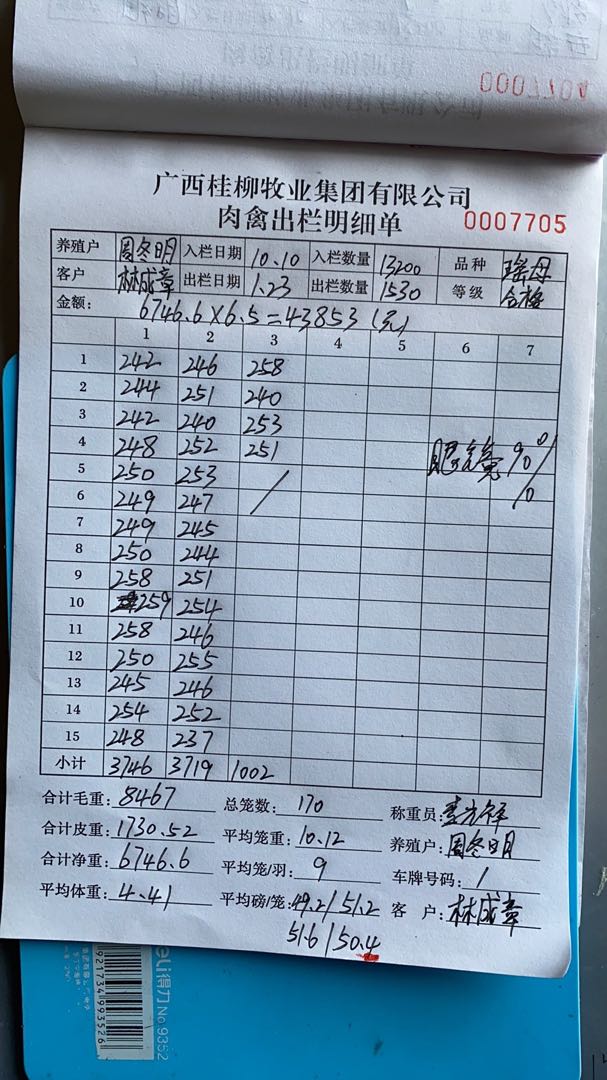 0007704
广西桂柳牧业集团有限公司
肉禽出栏明细单 0007705
养殖户 周冬明 入栏日期 10.10 入栏数量 13200 品种 瑶母
客户 林成章 出栏日期 1.23 出栏数量 1530 等级 合格
金额: 6746.6×6.5=43853(元)
1 2 3 4 5 6 7
1 242 246 258
2 244 251 240
3 242 240 253
4 248 252 251 90%
5 250 253 /
6 249 247
7 249 245
8 250 244
9 258 251
10 259 254
11 258 246
12 250 255
13 245 246
14 254 252
15 248 237
小计 3746 3719 1002
合计毛重: 8467 总笼数: 170 称重员:
合计皮重: 1730.52 平均笼重: 10.12 养殖户: 周冬明
合计净重: 6746.6 平均笼/羽: 9 车牌号码: /
平均体重: 4.41 平均磅/笼: 49.2/51.2 客 户: 林成章
51.6/50.4
deli得力 No.9352
6921734993526